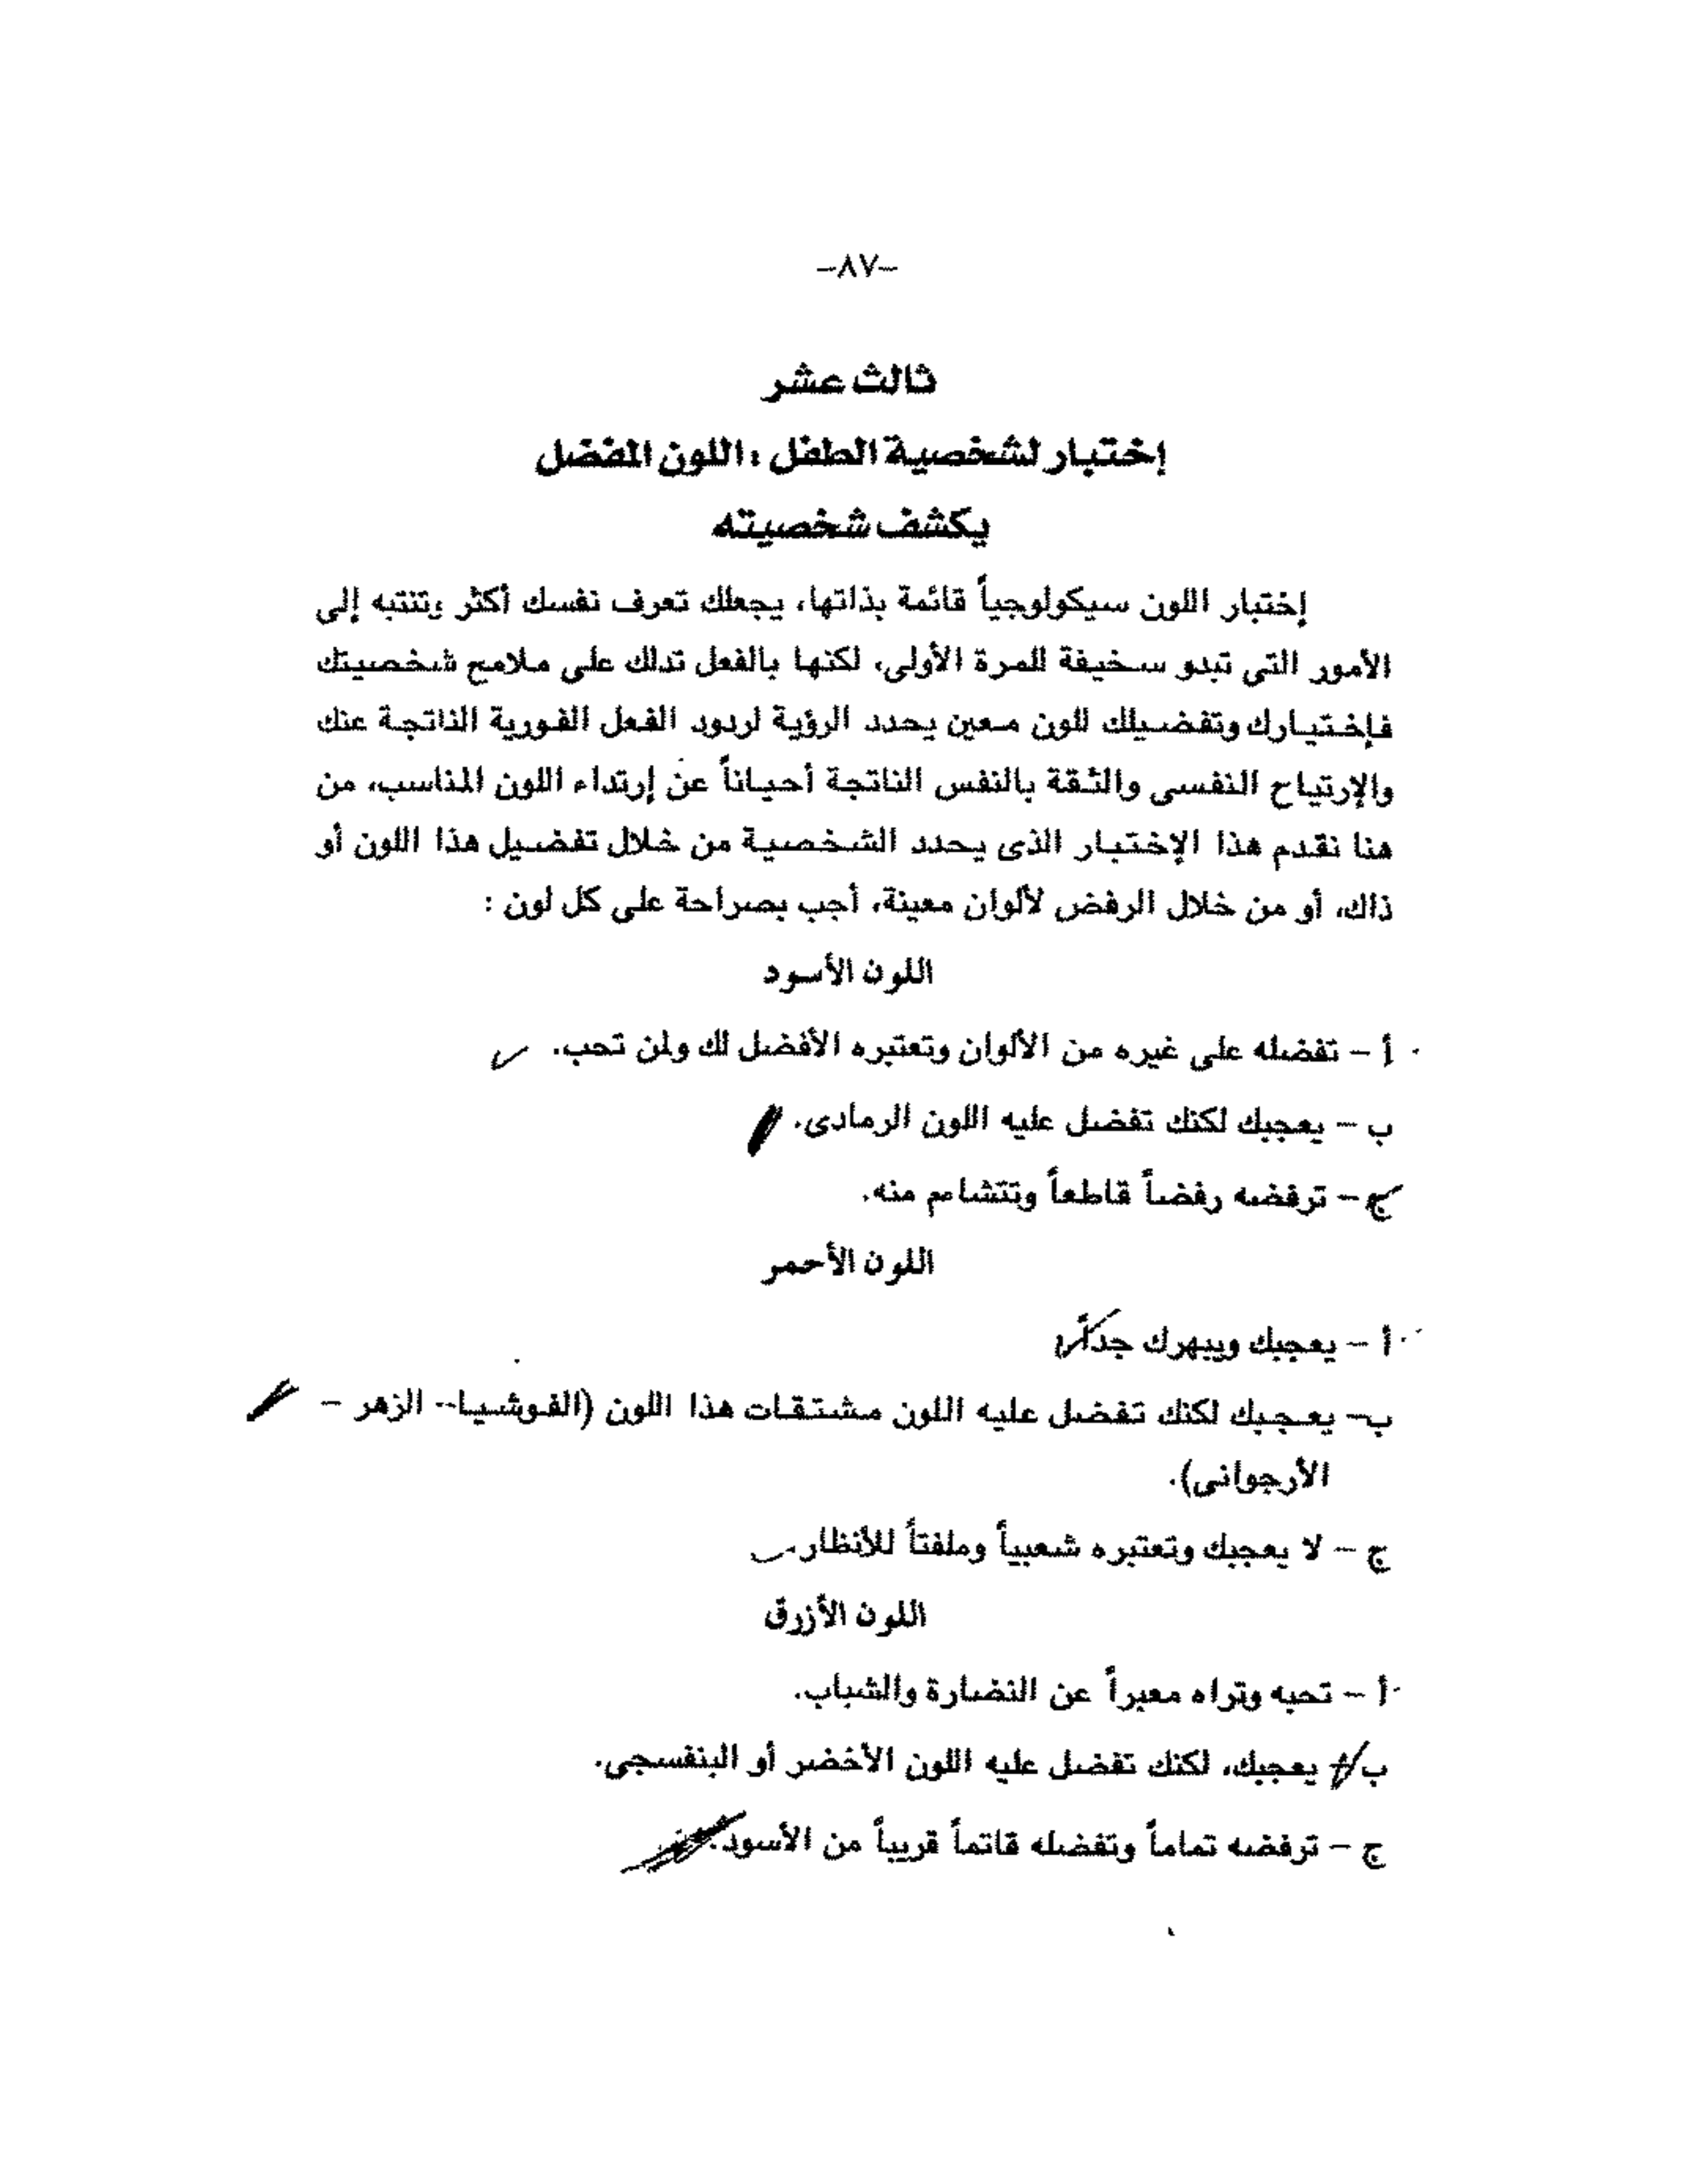 -٨٧-
ثالث عشر
إختبار لشخصية الطفل : اللون المفضل
يكشف شخصيته
إختبار اللون سيكولوجياً قائمة بذاتها، يجعلك تعرف نفسك أكثر وتنتبه إلى
الأمور التى تبدو سخيفة للمرة الأولى، لكنها بالفعل تدلك على ملامح شخصيتك
فإختيارك وتفضيلك للون معين يحدد الرؤية لردود الفعل الفورية الناتجة عنك
والإرتياح النفسى والثقة بالنفس الناتجة أحياناً عن إرتداء اللون المناسب، من
هنا نقدم هذا الإختبار الذى يحدد الشخصية من خلال تفضيل هذا اللون أو
ذاك، أو من خلال الرفض لألوان معينة، أجب بصراحة على كل لون :
اللون الأسود
أ - تفضله على غيره من الألوان وتعتبره الأفضل لك ولمن تحب.
ب - يعجبك لكنك تفضل عليه اللون الرمادى.
ج - ترفضه رفضاً قاطعاً وتتشاءم منه.
اللون الأحمر
أ - يعجبك ويبهرك جداً
ب- يعجبك لكنك تفضل عليه اللون مشتقات هذا اللون (الفوشيا - الزهر -
الأرجوانى).
ج - لا يعجبك وتعتبره شعبياً وملفتاً للأنظار
اللون الأزرق
أ - تحبه وتراه معبراً عن النضارة والشباب.
ب - يعجبك، لكنك تفضل عليه اللون الأخضر أو البنفسجى.
ج - ترفضه تماماً وتفضله قاتماً قريباً من الأسود.